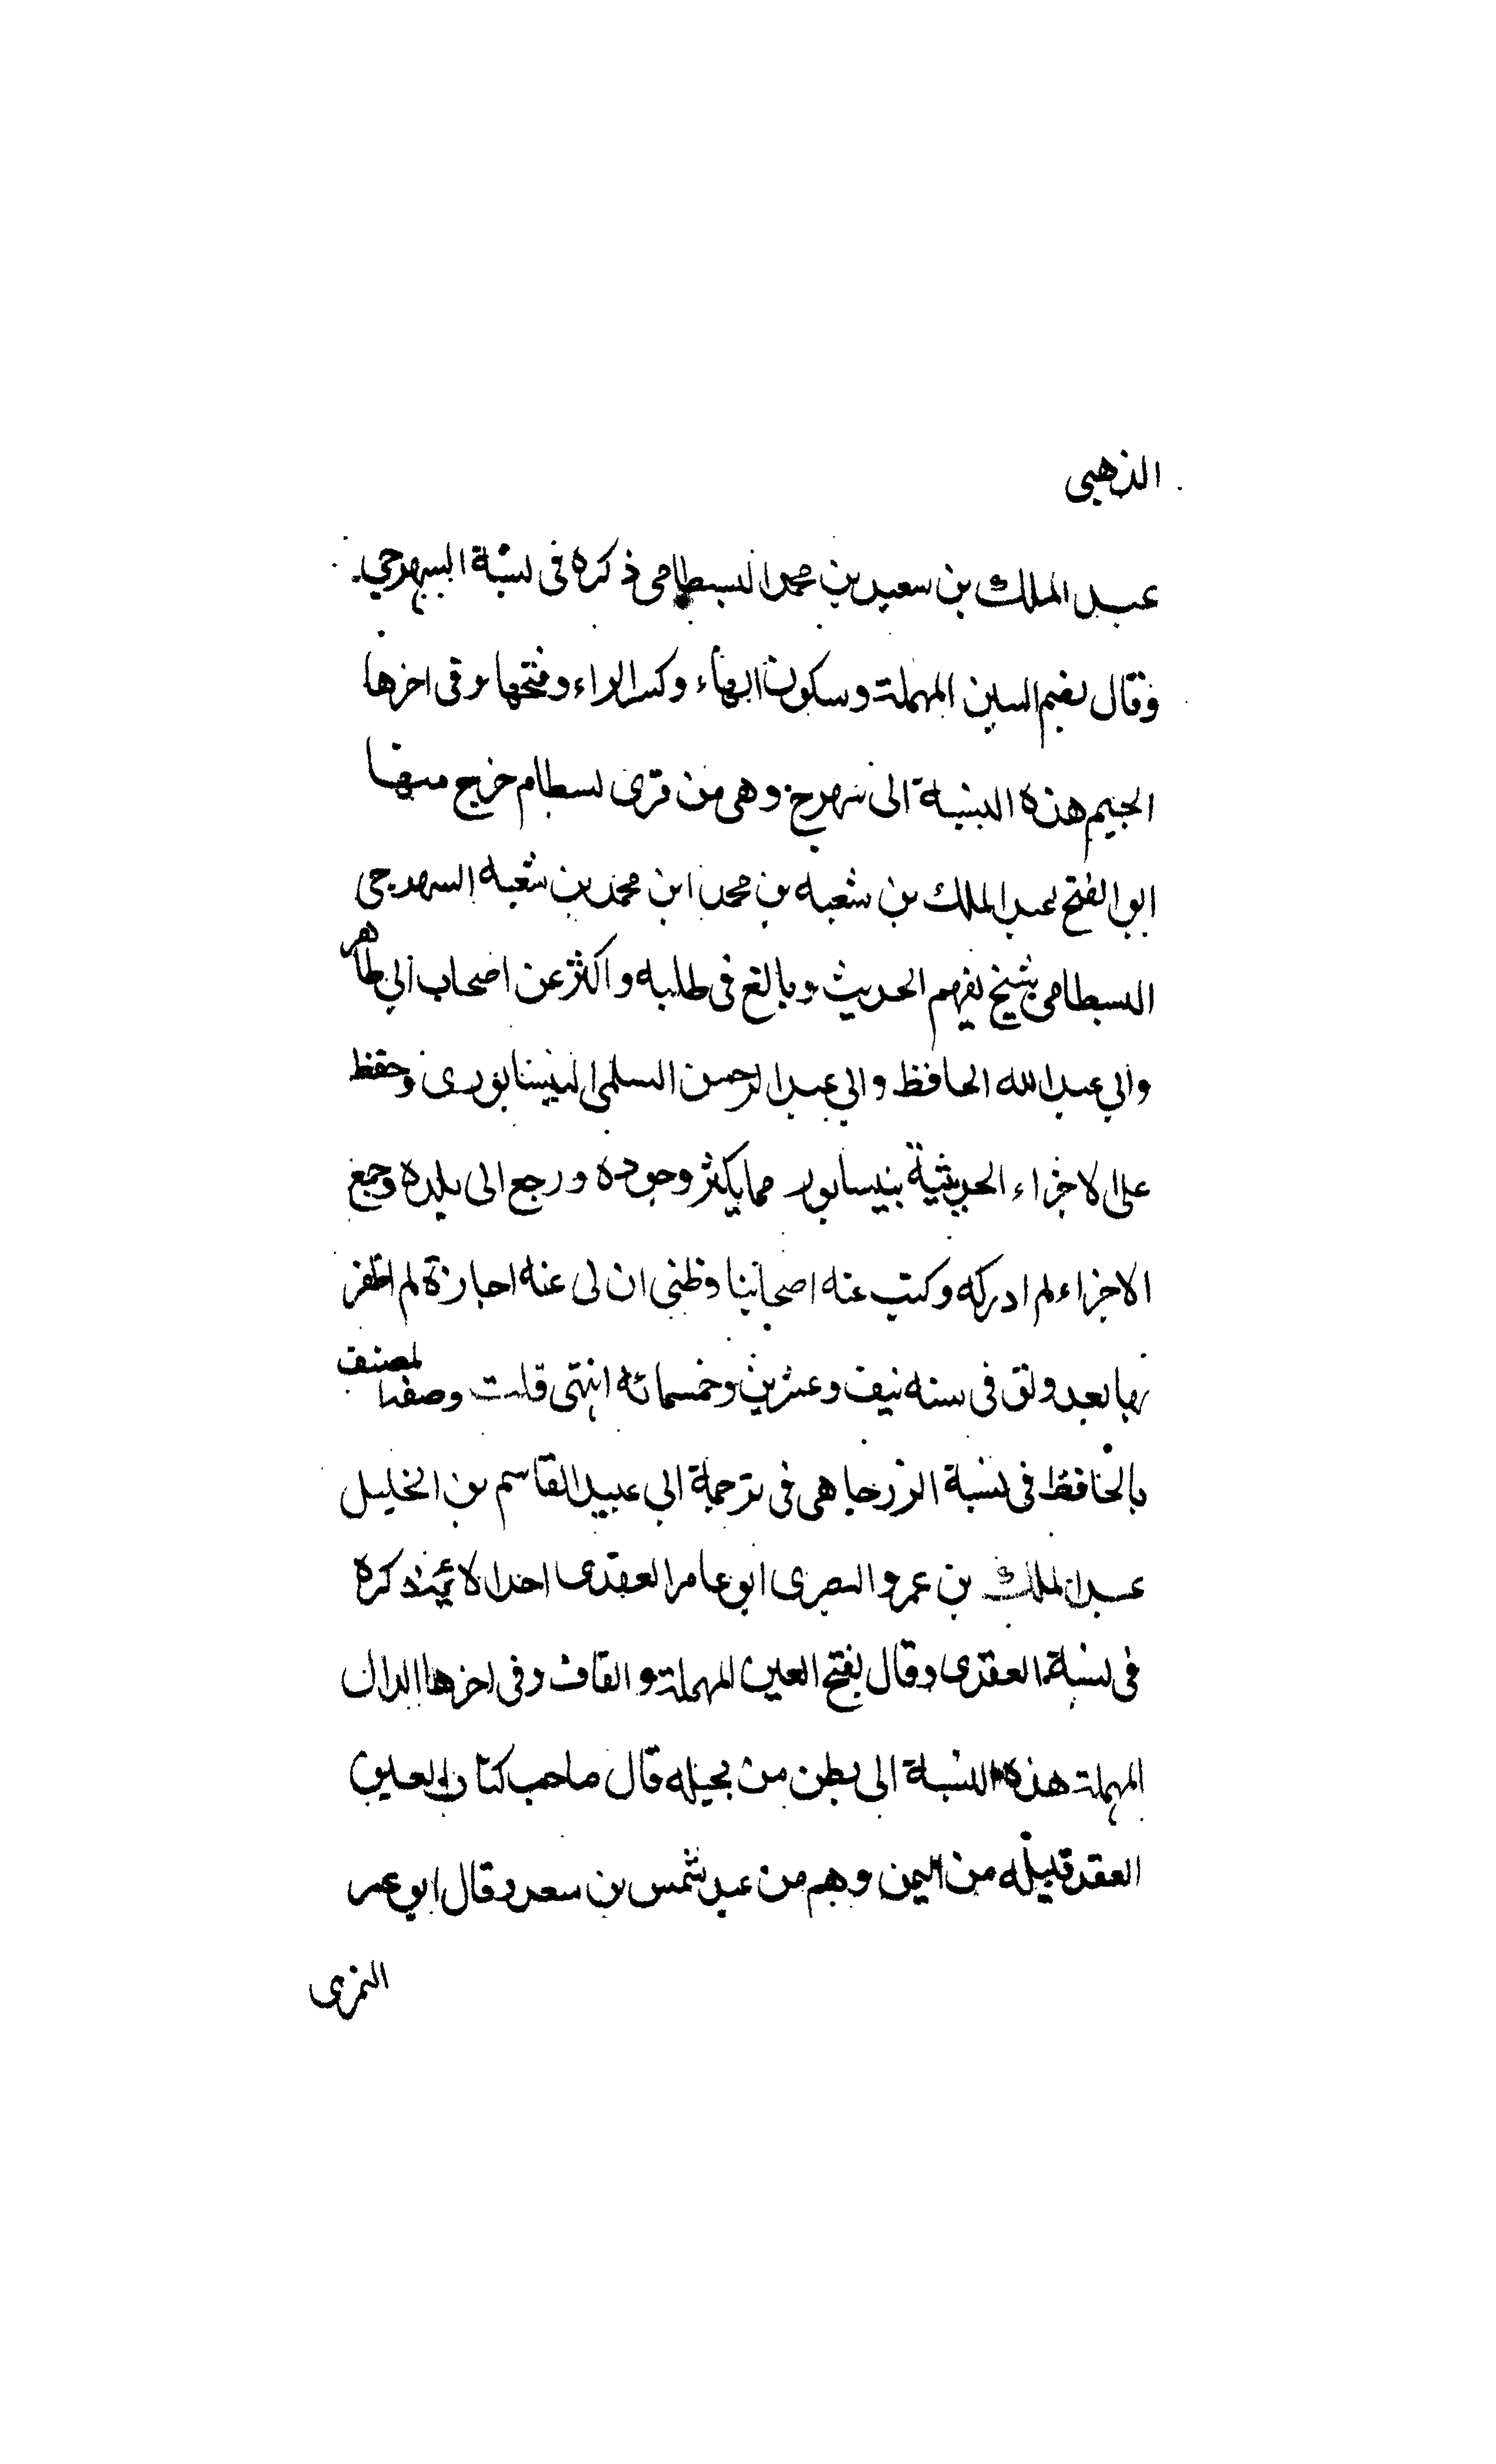 الذهبى
عبد الملك بن سعيد بن محمد البسطامى ذكره فى نسبة السهرجي
وقال بضم السين المهملة وسكون الهاء وكسر الراء وفتحها وفى اخرها
الجيم هذه النسبة الى سهرج وهى من قرى بسطام خرج منها
ابو الفتح عبد الملك بن شعبه بن محمد ابن محمد بن شعبه السهرجى
البسطامى شيخ يفهم الحديث وبالغ فى طلبه واكثر عن اصحاب ابي طاهر
وابي عبد الله الحافظ وابي عبد الرحمن السلمى النيسابورى وحفظ
على الاجزاء الحديثية بنيسابور مما يكثر وجوده ورجع الى بلده وجمع
الاجزاء لم ادركه وكتب عنه اصحابنا وظنى ان لى عنه اجازة لم اظفر
بها بعد وتوفى فى سنه نيف وعشرين وخمسمائه انتهى قلت وصفه المصنف
بالحافظ فى نسبة الزرجاهى فى ترجمة ابي عبيد القاسم بن الخليل
عبد الملك بن عمرو البصرى ابو عامر العقدى احد الائمة ذكره
فى نسبة العقدى وقال بفتح العين المهملة والقاف وفى اخرها الدال
المهملة هذه النسبة الى بطن من بجيله قال صاحب كتاب العين
العقد قبيله من اليمن وهم من عبد شمس بن سعد وقال ابو عمر
النمرى